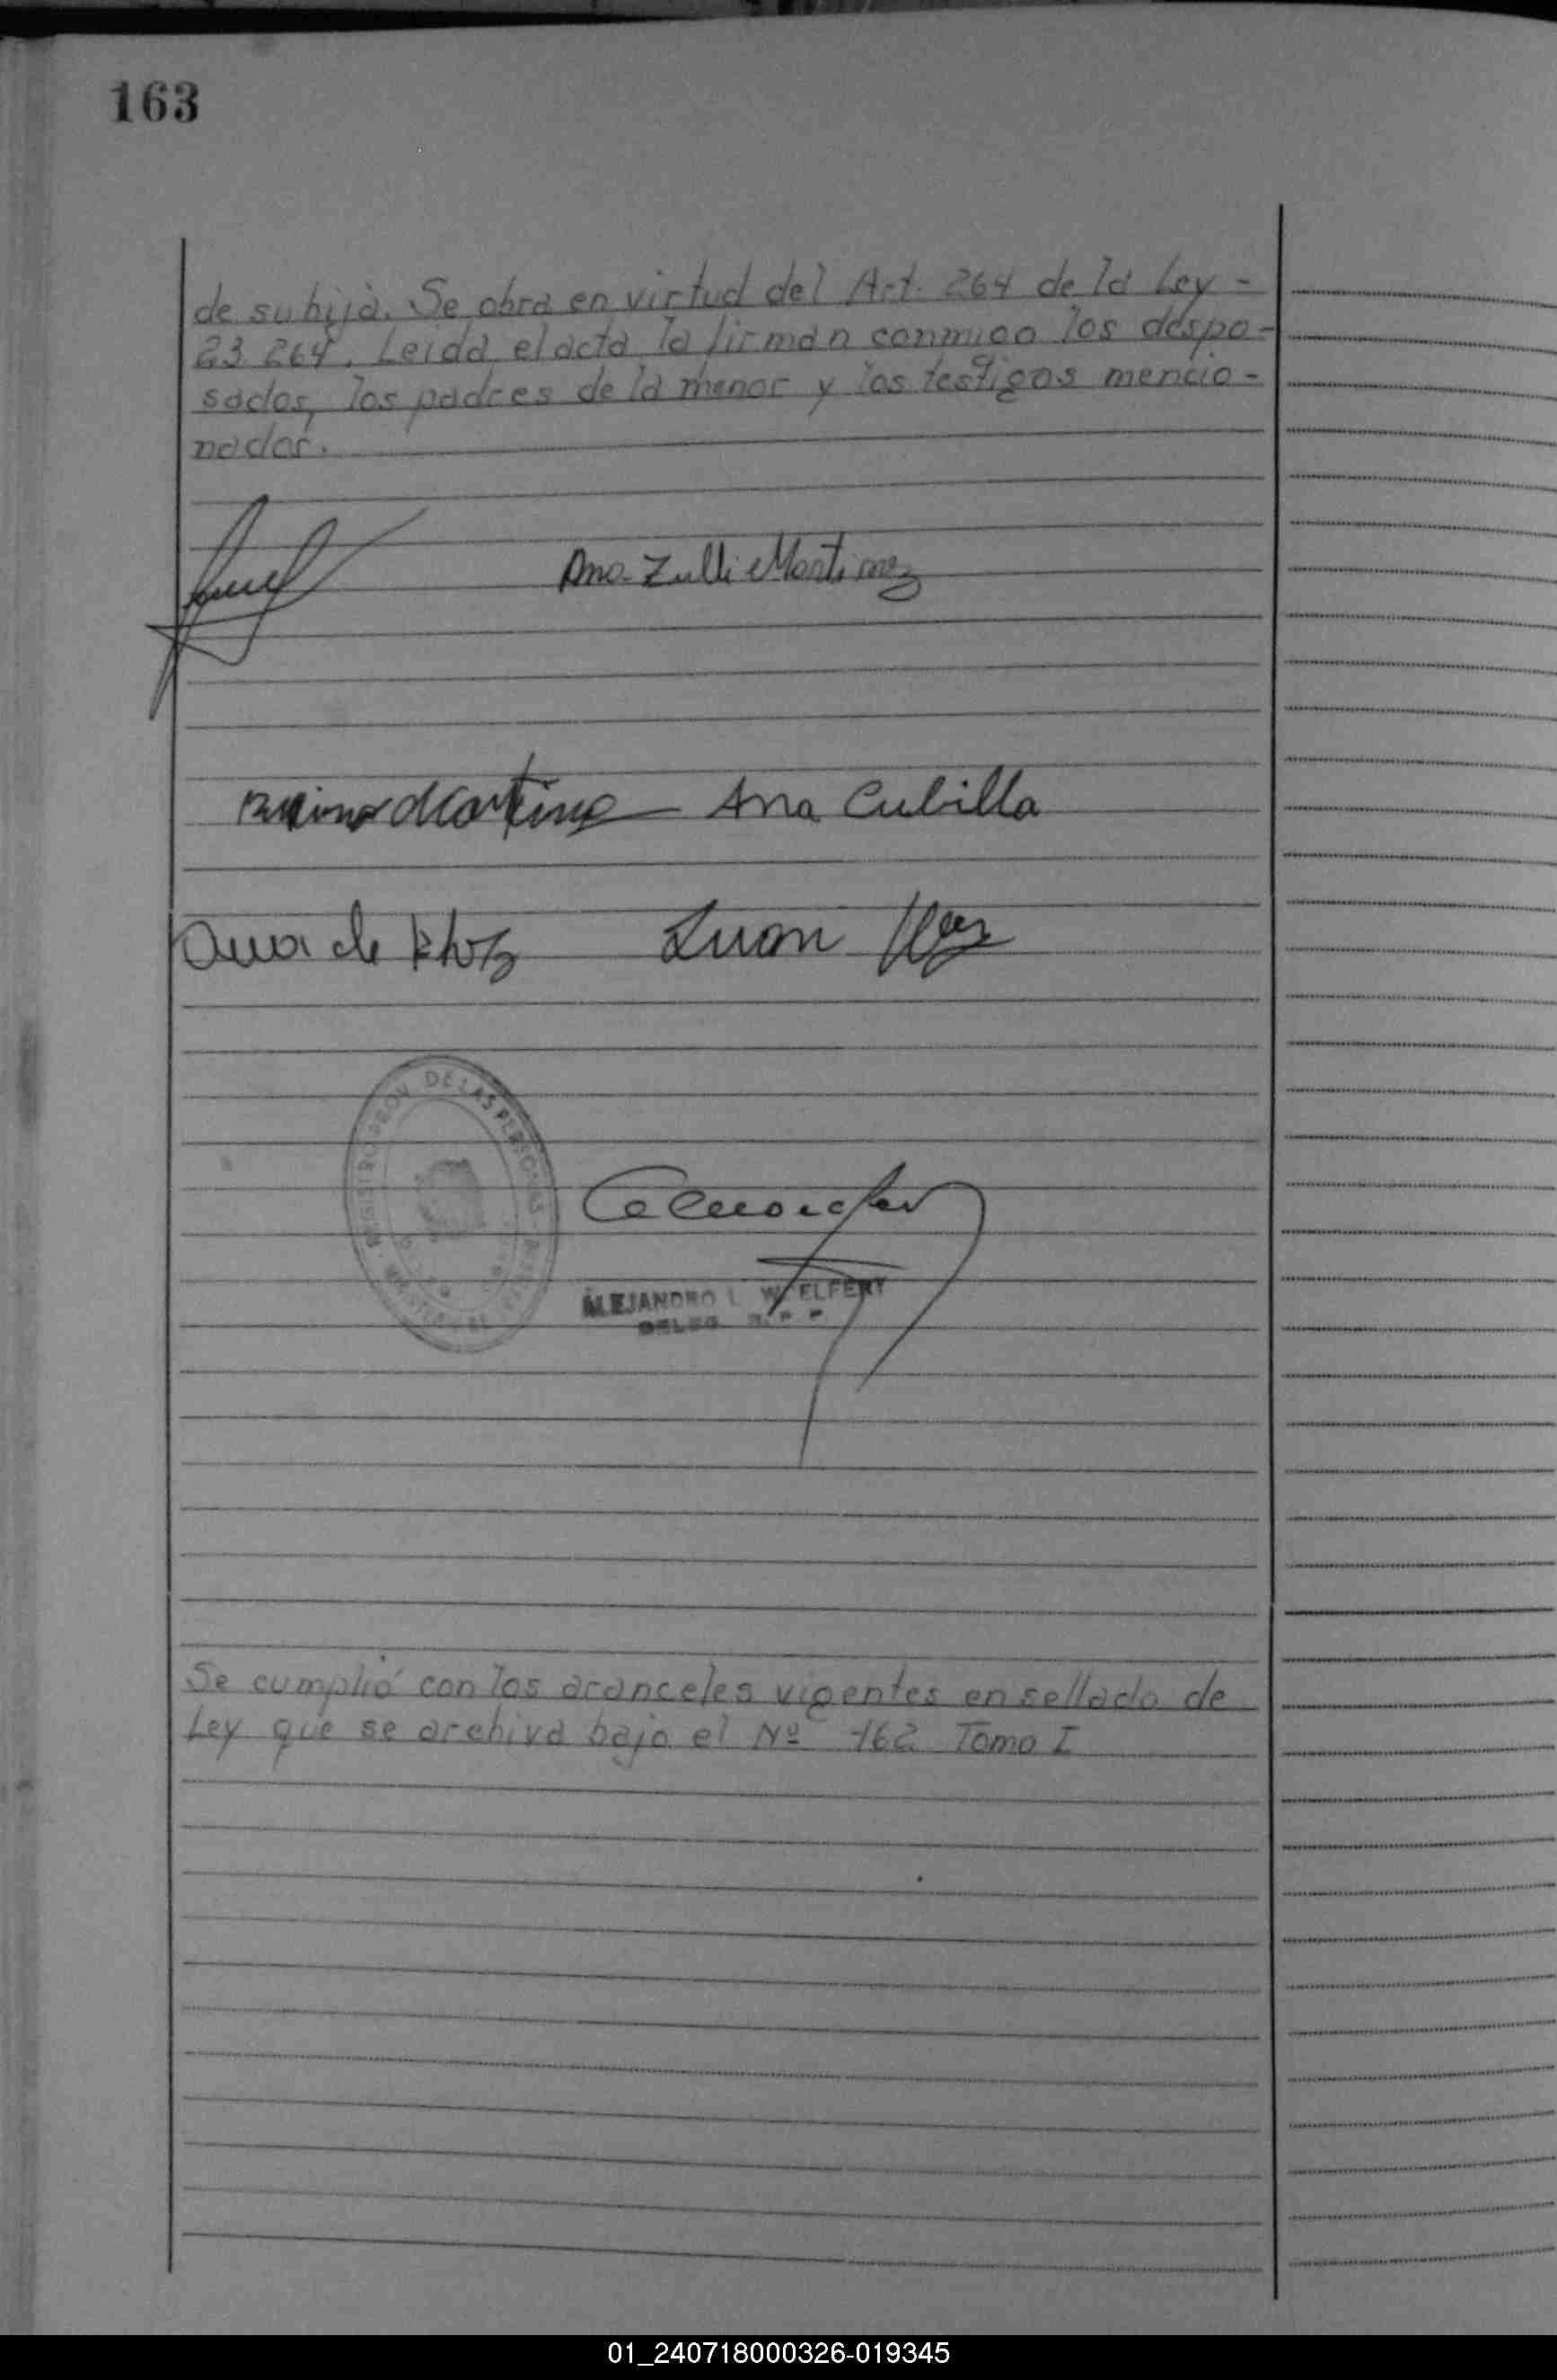 163
de su hija. Se obra en virtud del Art. 264 de la Ley -
23 264. Leida el acta la firman conmigo los despo-
sados, los padres de la menor y los testigos mencio-
nados.
Ana Zulli Martinez
Martinez Ana Cubilla
Ana de Juan
REGISTRO PROV. DE LAS PERSONAS
ALEJANDRO
DELEG. R. P. P.
Se cumplió con los aranceles vigentes en sellado de
Ley que se archiva bajo el Nº 162 Tomo I
01_240718000326-019345